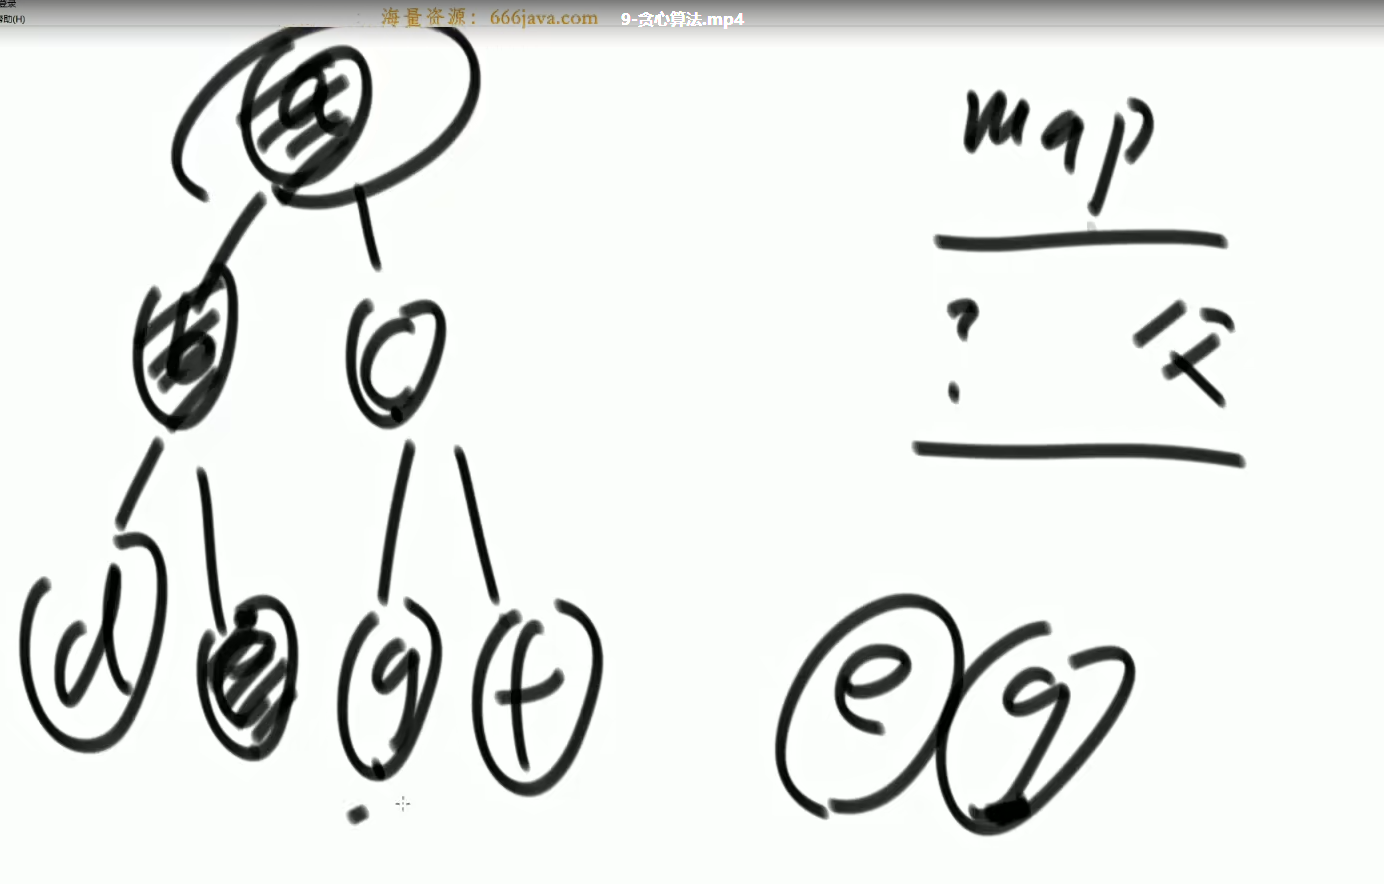 登录
帮助(H)
海量资源：666java.com 9-贪心算法.mp4
a
map
b c
? 父
d e g f
e g